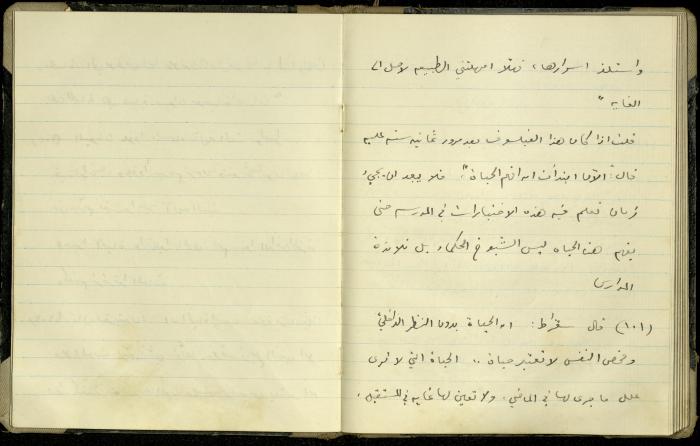 واستلذ اسرارها، فهلا امهلتني الطبيعه لاصل الى
الغايه"
قلت اذا كان هذا الفيلسوف بعد مرور ثمانيه سنه عليه
قال: "الآن ابتدأت ان افهم الحياة". فلا يبعد ان يجيء
زمان نعلم فيه هذه الاختبارات في المدرسه حتى
يفهم هذه الحياه ليس الشيوخ الحكماء بل تلامذة
المدارس
(١٠١) قال سقراط: ان الحياة بدون النظر الداخلي
وفحص النفس لا تعتبر حياة .. الحياة التي لا ترى
علل ما جرى لها في الماضي، ولا تعين لها غايه في المستقبل،